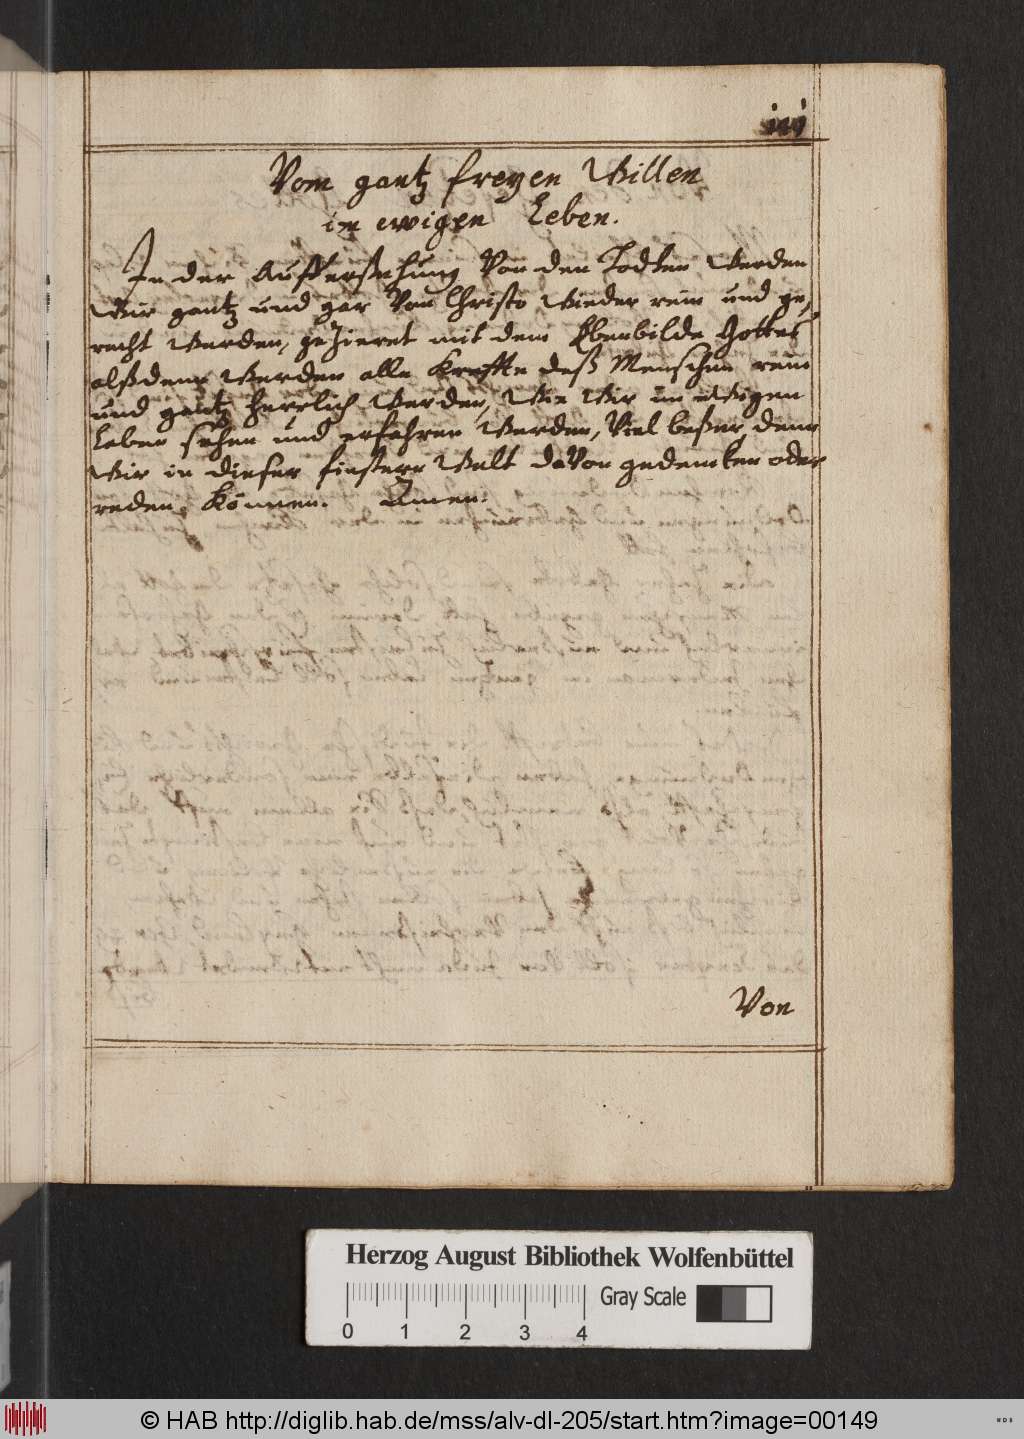 Vom gantz freyen Willen
im ewigen Leben.
In der Aufferstehung Von den Todten Werden
Wir gantz und gar Von Christo Wieder rein und ge,
recht Werden, gezieret mit dem Ebenbilde Gottes
alßdenn Werden alle Kreffte deß Menschen rein
und gantz herrlich Werden, Wie Wir im ewigen
Leben sehen und erfahren Werden, Viel beßer, denn
Wir in dieser finstern Welt daVon gedencken oder
reden Können. Amen.
Von
Herzog August Bibliothek Wolfenbüttel
Gray Scale
0 1 2 3 4
© HAB http://diglib.hab.de/mss/alv-dl-205/start.htm?image=00149